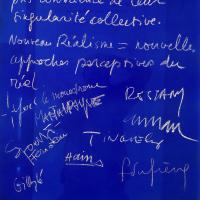 pas conscience de leur
singularité collective.
Nouveau Réalisme = nouvelles
approches perceptives du
réel.
Yves le monochrome
MARTIAL RAYSSE RESTANY
Arman
Spoerri
TINGUELY
Hains
Dufrêne